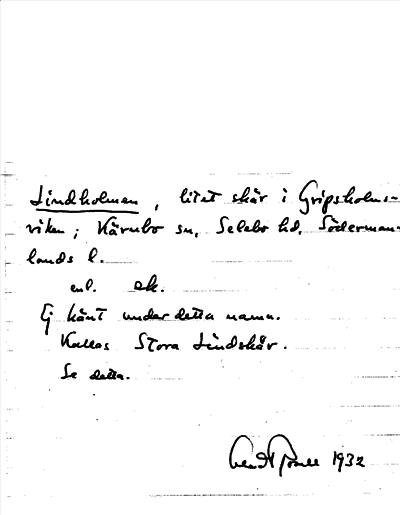 Lindholmen, litet skär i Gripsholms-
viken; Kärnbo sn, Selebo hd, Söderman-
lands l.
enl. ek.
Ej känt under detta namn.
Kallas Stora Lindskär.
Se detta.
1932